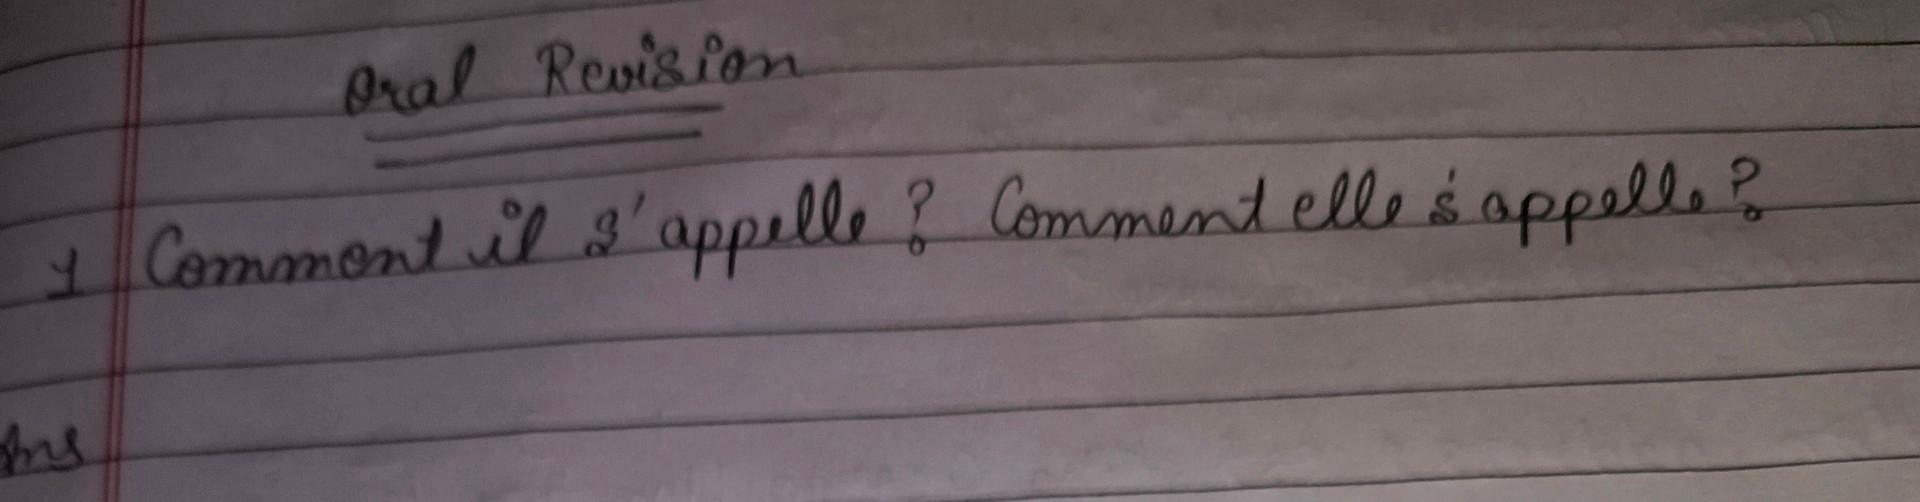 Oral Revision
1 Comment il s'appelle ? Comment elle s'appelle ?
Ans